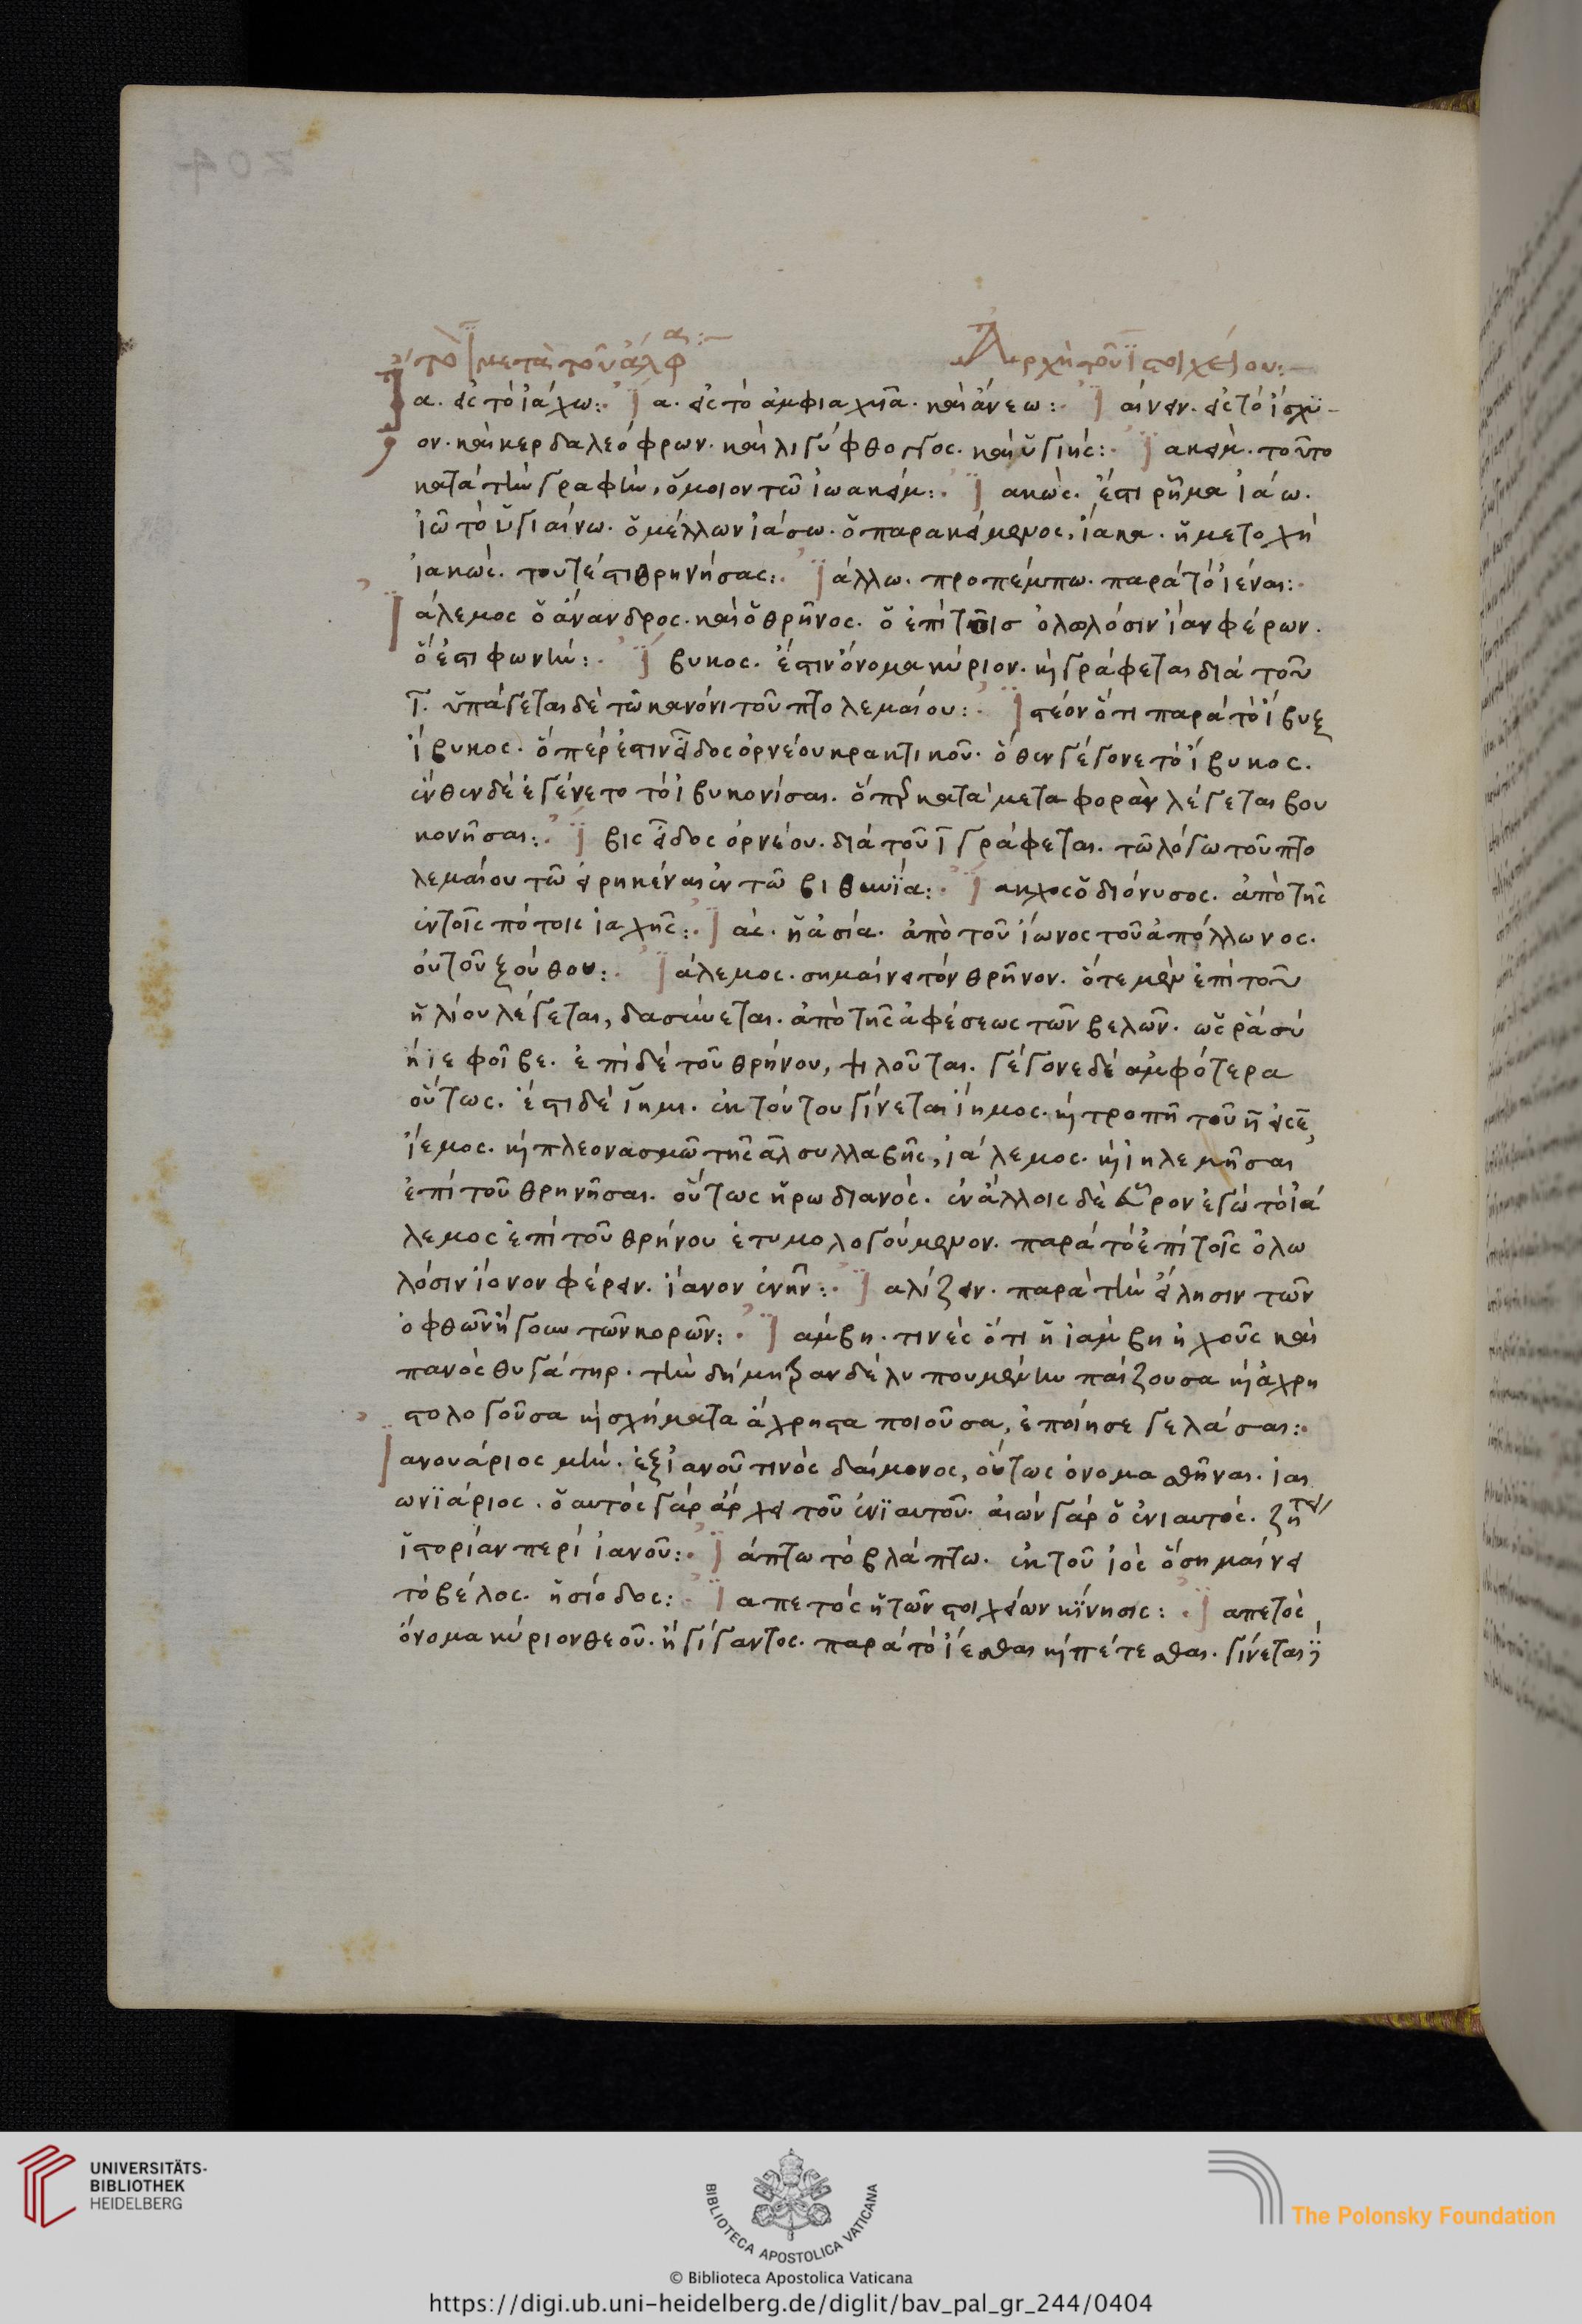 τὸ ϊ μετὰ τοῦ ἄλφα :– Ἀρχὴ τοῦ ϊ στοιχείου :–
Ἴα. εἰς τὸ ἰάχω :· Ἴα. εἰς τὸ ἀμφιαχυῖα. καὶ ἄνεω :· Ἰαίνειν. εἰς τὸ ἰσχύ-
ον. καὶ κερδαλεόφρων. καὶ λιγύφθογγος. καὶ ὑγιής :· Ἰακείμ. τοῦτο
κατὰ τὴν γραφὴν, ὅμοιον τῶ ἰωακείμ :· Ἰακὼς. ἔστι ρῆμα ἰάω.
ἰῶ τὸ ὑγιαίνω. ὁ μέλλων ἰάσω. ὁ παρακείμενος, ἴακα. ἡ μετοχὴ
ἰακὼς. τουτέστι θρηνήσας :· Ἰάλλω. προπέμπω. παρὰ τὸ ἰέναι :·
Ἰάλεμος ὁ ἄνανδρος. καὶ ὁ θρῆνος. ὁ ἐπὶ τοῖς ὀλωλόσιν ἰὰν φέρων.
ὅ ἐστι φωνὴν :· Ἴβυκος. ἔστιν ὄνομα κύριον. καὶ γράφεται διὰ τοῦ
ϊ. ὑπάγεται δὲ τῶ κανόνι τοῦ πτολεμαίου :· Ἰστέον ὅτι παρὰ τὸ ἴβυξ
ἴβυκος. ὅπερ ἐστὶν εἶδος ὀρνέου κρακτικοῦ. ὅθεν γέγονε τὸ ἴβυκος.
ἔνθεν δὲ ἐγένετο τὸ ἰβυκονίσαι. ὅπερ κατὰ μεταφορὰν λέγεται βου
κονῆσαι :· Ἴβις εἶδος ὀρνέου. διὰ τοῦ ϊ γράφεται. τῶ λόγω τοῦ πτο
λεμαίου τῶ εἰρηκέναι ἐν τῶ βιθυνία :· Ἴακχος ὁ διόνυσος. ἀπὸ τῆς
ἐν τοῖς πότοις ἰαχῆς :· Ἰάς. ἡ ἀσία. ἀπὸ τοῦ ἴωνος τοῦ ἀπόλλωνος.
οὐ τοῦ ξούθου :· Ἰάλεμος. σημαίνει τὸν θρῆνον. ὅτε μὲν ἐπὶ τοῦ
ἡλίου λέγεται, δασύνεται. ἀπὸ τῆς ἀφέσεως τῶν βελῶν. ὡς ρα σύ
ἤιε φοῖβε. ἐπὶ δὲ τοῦ θρήνου, ψιλοῦται. γέγονε δὲ ἀμφότερα
οὕτως. ἔστι δὲ ἵημι. ἐκ τούτου γίνεται ἴημος. καὶ τροπῆ τοῦ η εἰς ε,
ἴεμος. καὶ πλεονασμῶ τῆς αλ συλλαβῆς, ἰάλεμος. καὶ ἰηλεμῆσαι
ἐπὶ τοῦ θρηνῆσαι. οὕτως ἡρωδιανός. ἐν ἄλλοις δὲ εὗρον ἐγὼ τὸ ἰά
λεμος ἐπὶ τοῦ θρήνου ἐτυμολογούμενον. παρὰ τὸ ἐπὶ τοῖς ὀλω
λόσιν ἴονον φέρειν. ἴανον ἐνῆν :· Ἰαλίζειν. παρὰ τὴν εἴλησιν τῶν
ὀφθῶν ἤγουν τῶν κορῶν :· Ἰάμβη. τινὲς ὅτι ἡ ἰάμβη ἠχοῦς καὶ
πανὸς θυγάτηρ. τὴν δήμητραν δὲ λυπουμένην παίζουσα καὶ ἀχρη
στολογοῦσα καὶ σχήματα ἄχρηστα ποιοῦσα, ἐποίησε γελάσαι :·
Ἰανουάριος μὴν. ἐξ ἰανοῦ τινὸς δαίμονος, οὕτως ὀνομασθῆναι. ἰαι
ωνϊάριος. ὁ αυτὸς γὰρ ἄρχει τοῦ ἐνϊαυτοῦ. αἰὼν γὰρ ὁ ἐνιαυτός. ζήτει
ἱστορίαν περὶ ἰανοῦ :· Ἰάπτω τὸ βλάπτω. ἐκ τοῦ ἰὸς ὃ σημαίνει
τὸ βέλος. ἡσίοδος :· Ἰαπετὸς ἡ τῶν στοιχείων κίνησις :· Ἰαπετὸς
ὄνομα κύριον θεοῦ. ἢ γίγαντος. παρὰ τὸ ἵεσθαι καὶ πέτεσθαι. γίνεται ϊ
UNIVERSITÄTS-
BIBLIOTHEK
HEIDELBERG
BIBLIOTECA APOSTOLICA VATICANA
The Polonsky Foundation
© Biblioteca Apostolica Vaticana
https://digi.ub.uni-heidelberg.de/diglit/bav_pal_gr_244/0404